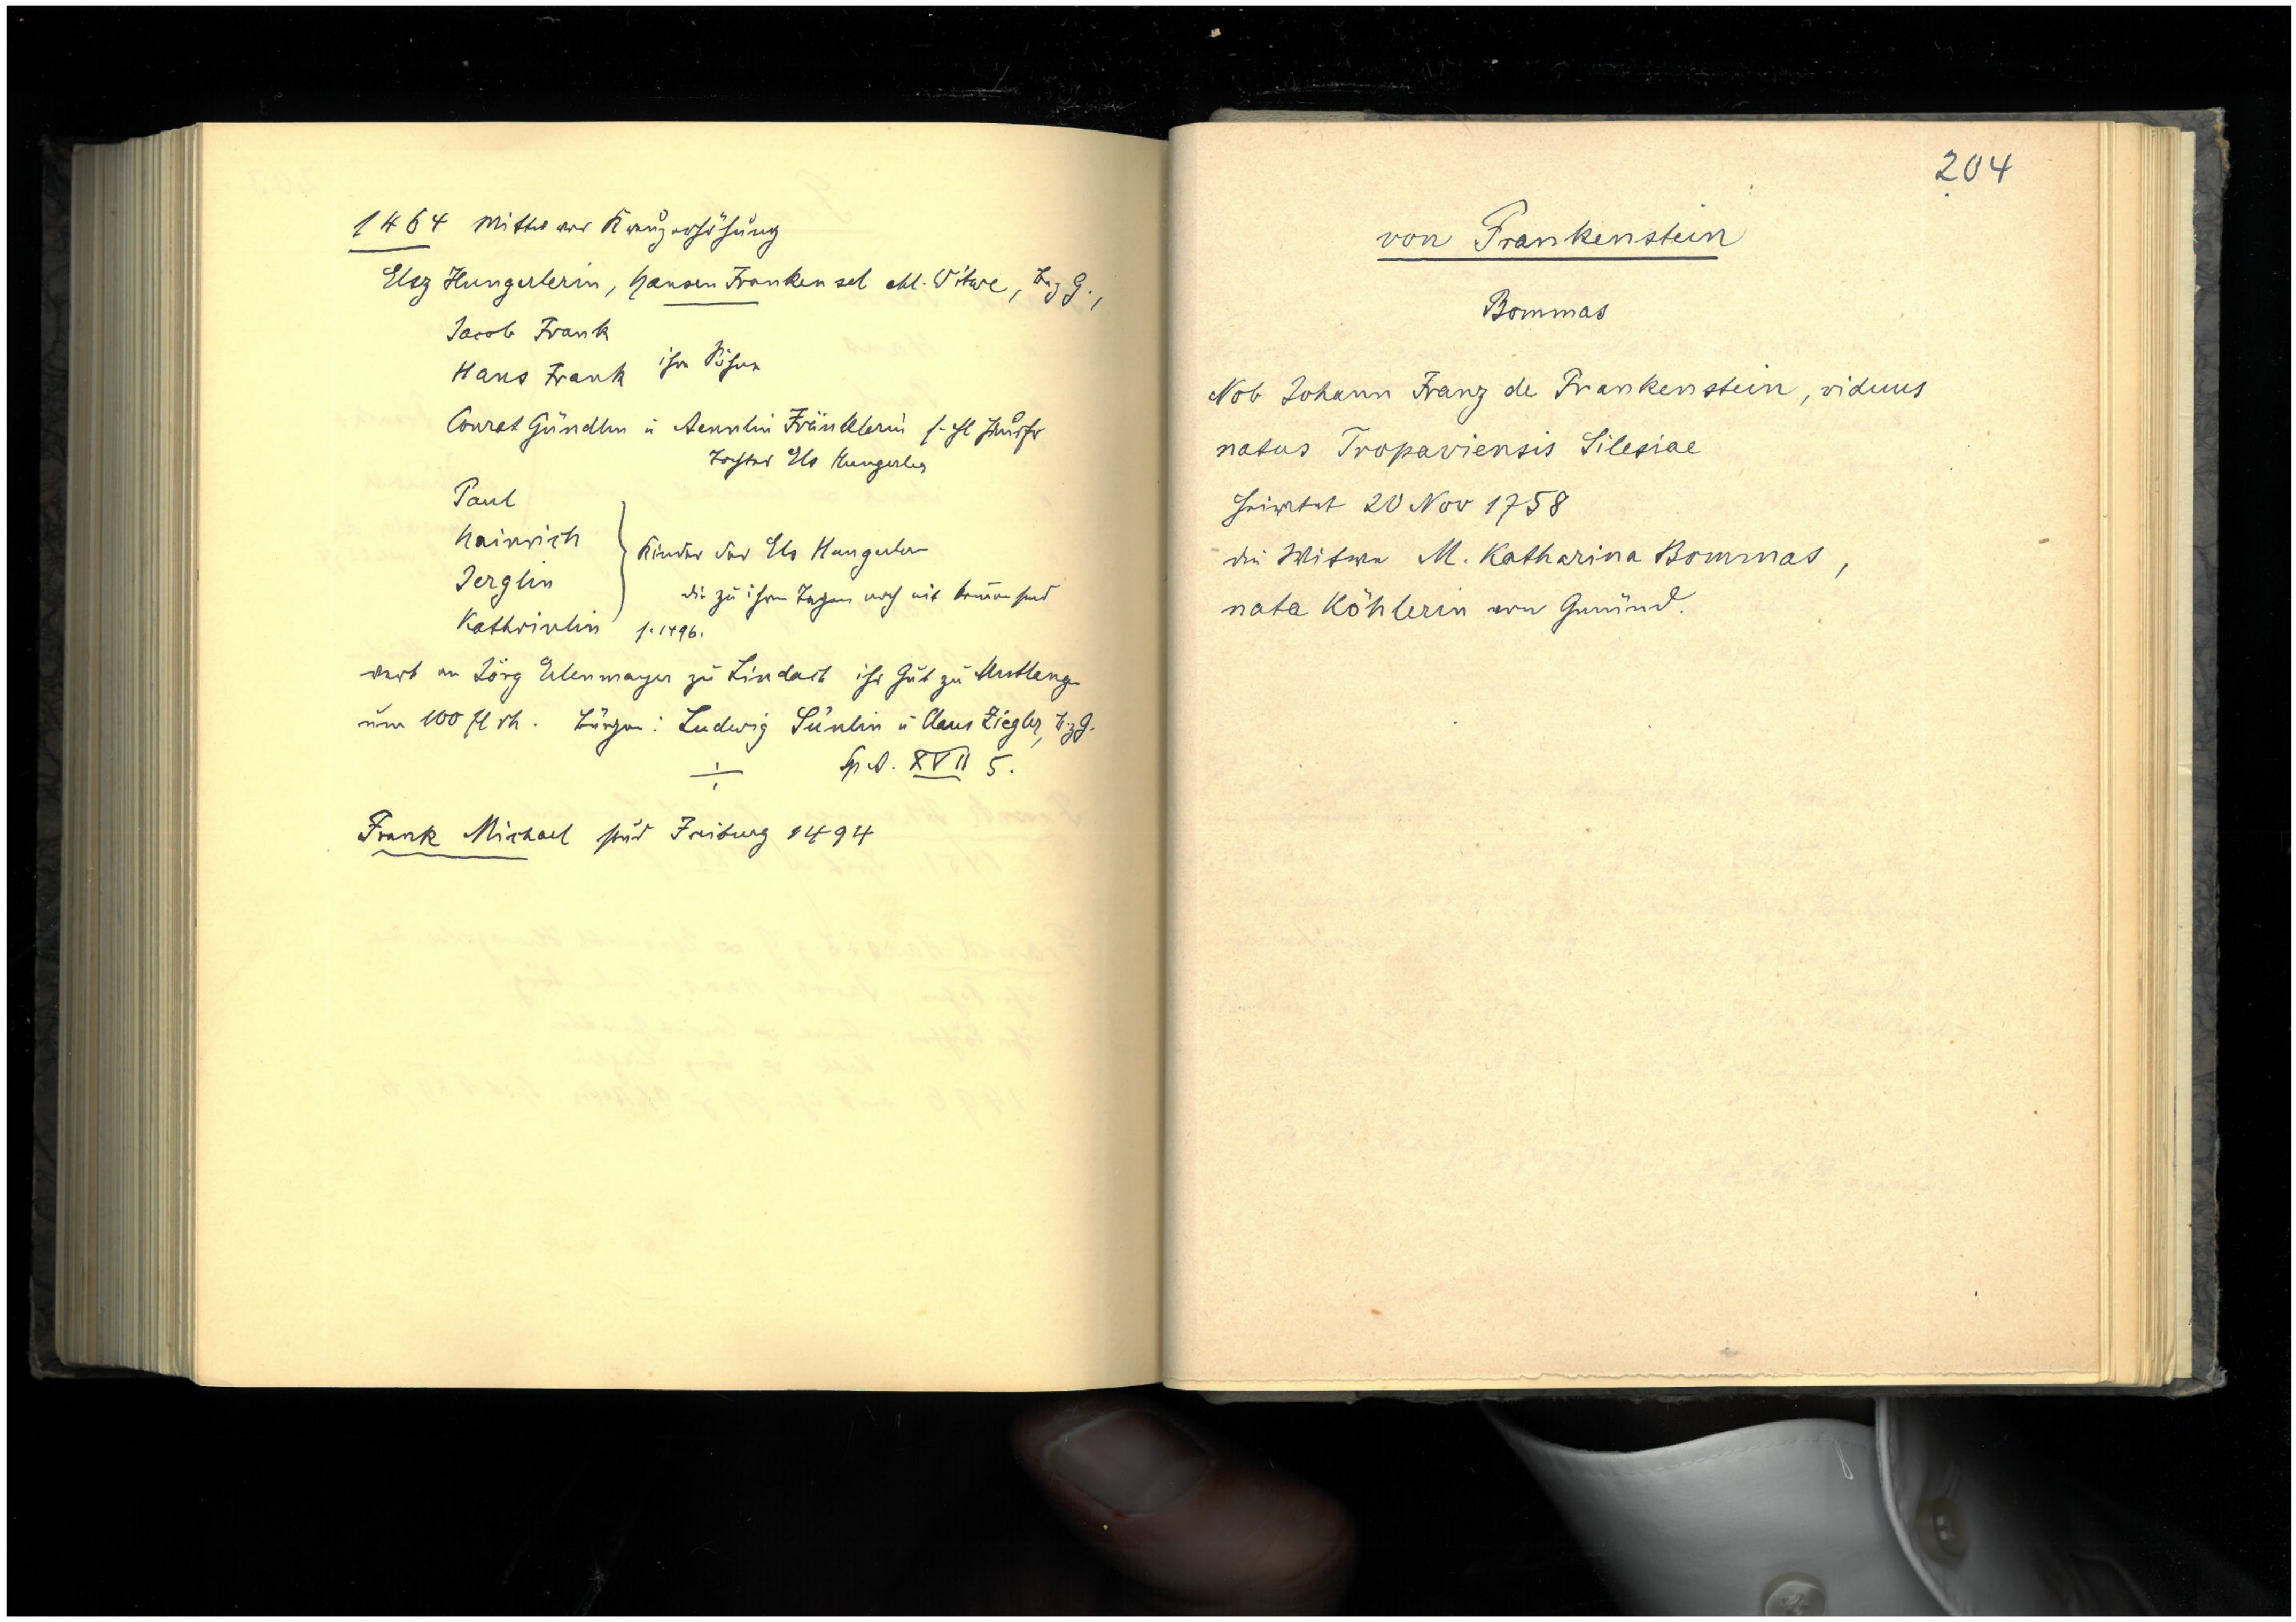 1464 Mittw vor Kreuzerhöhung
Elsz Hungerlerin, Hansen Franken sel ehl. Witwe, B.z.G.,
Jacob Frank
Hans Frank ihre Söhne
Conrat Gündlin u Aennlin Fränklerin s. ehl Husfr
Tochter Els Hungerler
Paul
Hainrich
Jerglin
Kathrinlin
Kinder der Els Hungerler
die zu ihren Tagen noch nit komen sind
s. 1496.
verk an Jörg Erlenmayer zu Lindach ihr Gut zu Mutlang
um 100 fl rh. Bürgen: Ludwig Sünlin u Claus Ziegler, B.z.G.
Sp A. XVII 5.
Frank Michael stud Freiburg 1494
204
von Frankenstein
Bommas
Nob Johann Franz de Frankenstein, viduus
natus Tropaviensis Silesiae
heiratet 20 Nov 1758
die Witwe M. Katharina Bommas,
nata Köhlerin von Gmünd.